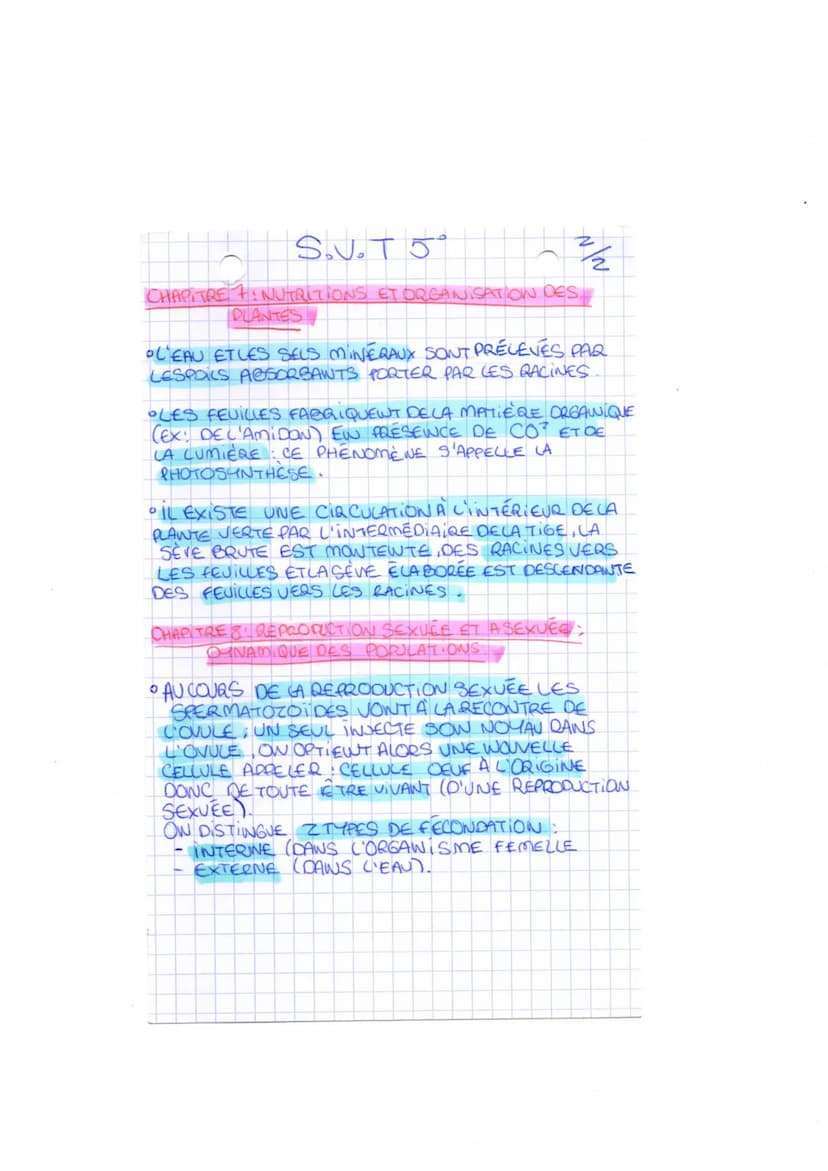 S.V.T 5°
2/2
CHAPITRE 7 : NUTRITIONS ET ORGANISATION DES
PLANTES
° L'EAU ET LES SELS MINÉRAUX SONT PRÉLEVÉS PAR
LES POILS ABSORBANTS PORTER PAR LES RACINES.
° LES FEUILLES FABRIQUENT DE LA MATIÈRE ORGANIQUE
(EX : DE L'AMIDON) EN PRÉSENCE DE CO² ET DE
LA LUMIÈRE : CE PHÉNOMÈNE S'APPELLE LA
PHOTOSYNTHÈSE.
° IL EXISTE UNE CIRCULATION À L'INTÉRIEUR DE LA
PLANTE VERTE PAR L'INTERMÉDIAIRE DE LA TIGE, LA
SÈVE BRUTE EST MONTENTE, DES RACINES VERS
LES FEUILLES ET LA SÈVE ÉLABORÉE EST DESCENDANTE
DES FEUILLES VERS LES RACINES.
CHAPITRE 8 : REPRODUCTION SEXUÉE ET ASEXUÉE ;
DYNAMIQUE DES POPULATIONS
° AU COURS DE LA REPRODUCTION SEXUÉE LES
SPERMATOZOÏDES VONT À LA RECONTRE DE
L'OVULE, UN SEUL INJECTE SON NOYAU DANS
L'OVULE, ON OPTIENT ALORS UNE NOUVELLE
CELLULE APPELER : CELLULE OEUF À L'ORIGINE
DONC DE TOUTE ÊTRE VIVANT (D'UNE REPRODUCTION
SEXUÉE).
ON DISTINGUE 2 TYPES DE FÉCONDATION :
- INTERNE (DANS L'ORGANISME FEMELLE
- EXTERNE (DANS L'EAU).